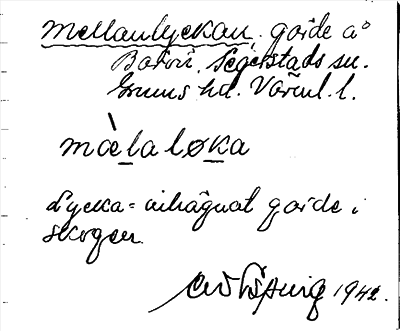 Mellanlyckan, gärde å
Botorp, Segerstads sn.
Grums hd. Värml. l.
mὲlaløka
Lycka = inhägnat gärde i
skogen.
1942.